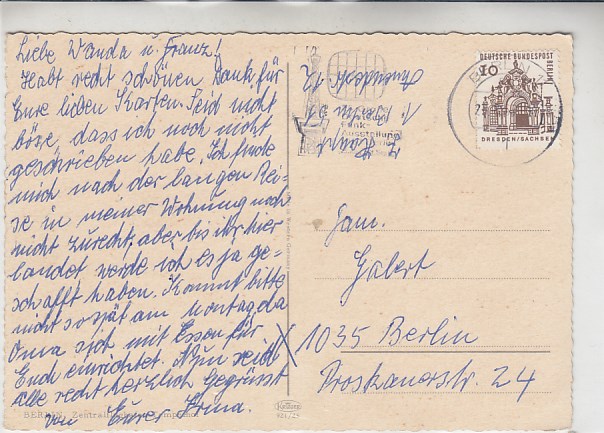 Liebe Wanda u. Franz!
Habt recht schönen Dank für
Eure lieben Karten. Seid nicht
böse, dass ich noch nicht
geschrieben habe. Ich finde
mich nach der langen Rei=
se in meiner Wohnung noch
nicht zurecht, aber bis ihr hier
landet werde ich es ja ge=
schafft haben. Kommt bitte
nicht so spät am Montag da
Oma sich mit Essen für
Euch einrichtet. Nun seid
alle recht herzlich Gegrüsst
von Eurer Irma.
BERLIN, Zentralflughafen Tempelhof
DEUTSCHE BUNDESPOST BERLIN
10
DRESDEN/SACHSEN
BERLIN
Ausstellung
Fam.
Galert
1035 Berlin
Proskauerstr. 24